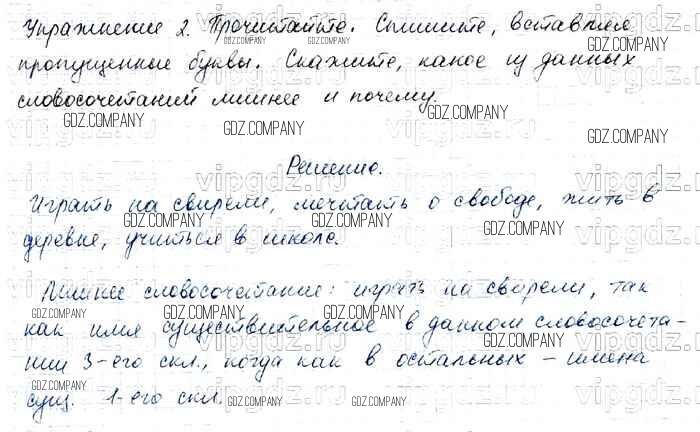 Упражнение 2. Прочитайте. Спишите, вставляя
пропущенные буквы. Скажите, какое из данных
словосочетаний лишнее и почему.
Решение.
Играть на свирели, мечтать о свободе, жить в
деревне, учиться в школе.
Лишнее словосочетание: играть на свирели, так
как имя существительное в данном словосочета-
нии 3-его скл., когда как в остальных – имена
сущ. 1-его скл.